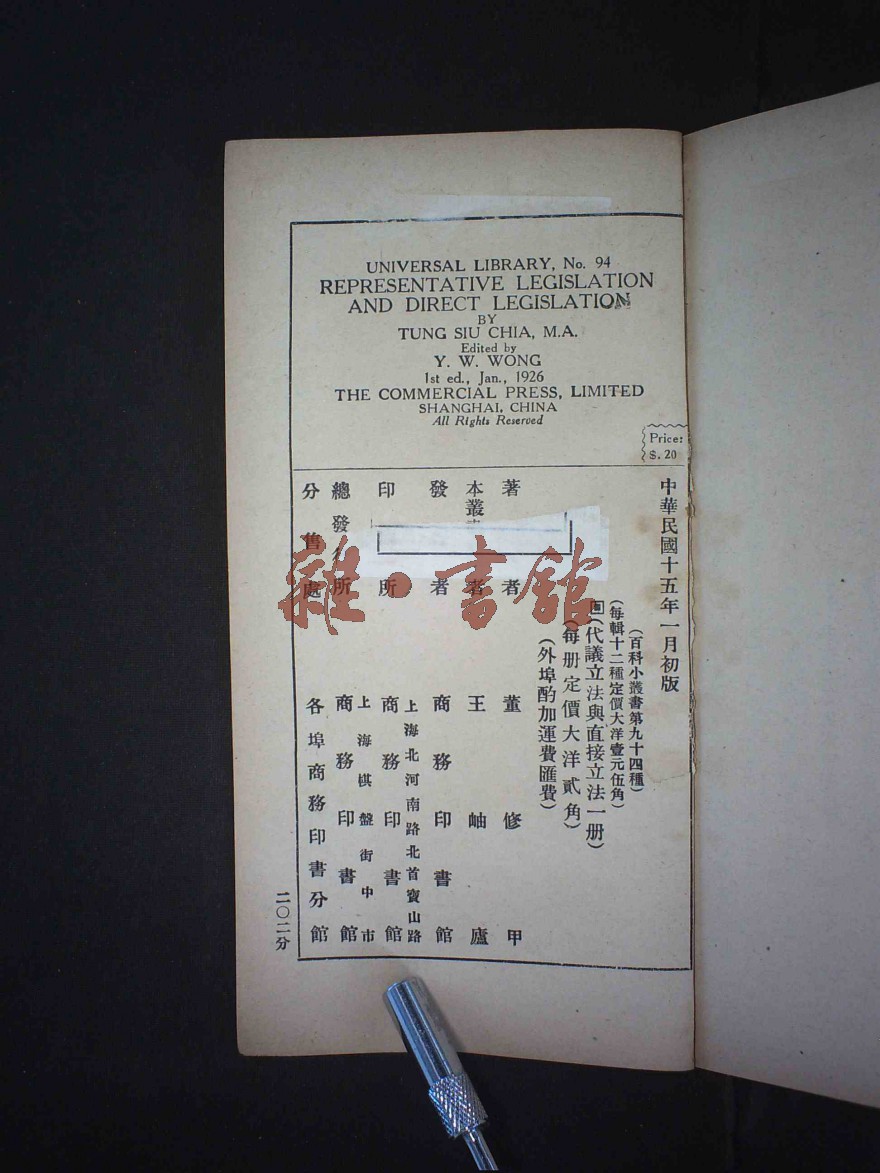 UNIVERSAL LIBRARY, No. 94
REPRESENTATIVE LEGISLATION
AND DIRECT LEGISLATION
BY
TUNG SIU CHIA, M.A.
Edited by
Y. W. WONG
1st ed., Jan., 1926
THE COMMERCIAL PRESS, LIMITED
SHANGHAI, CHINA
All Rights Reserved
Price:
$. 20
中華民國十五年一月初版
(百科小叢書第九十四種)
(每輯十二種定價大洋壹元伍角)
(代議立法與直接立法一册)
(每册定價大洋貳角)
(外埠酌加運費匯費)
著者 董修甲
本叢 者 王岫廬
發 者 商務印書館
上海北河南路北首寶山路
印 所 商務印書館
上海棋盤街中市
總發行所 商務印書館
分售處 各埠商務印書分館
二〇二分
雜·書館